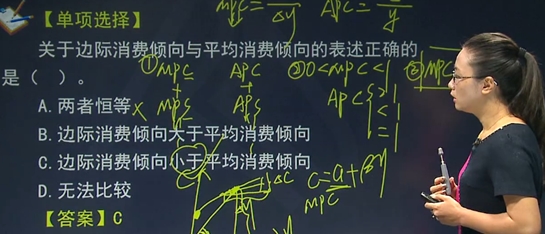 MPC = —/Δy APC = —/y
【单项选择】
关于边际消费倾向与平均消费倾向的表述正确的
① MPC APC ② 0<MPC<1 ③ MPC
是（ ）。
+ +
A.两者恒等 × MPS APS APC { >1 <1 =1
B.边际消费倾向大于平均消费倾向
C.边际消费倾向小于平均消费倾向
c=a+βy
D.无法比较 ΔC MPC
【答案】C